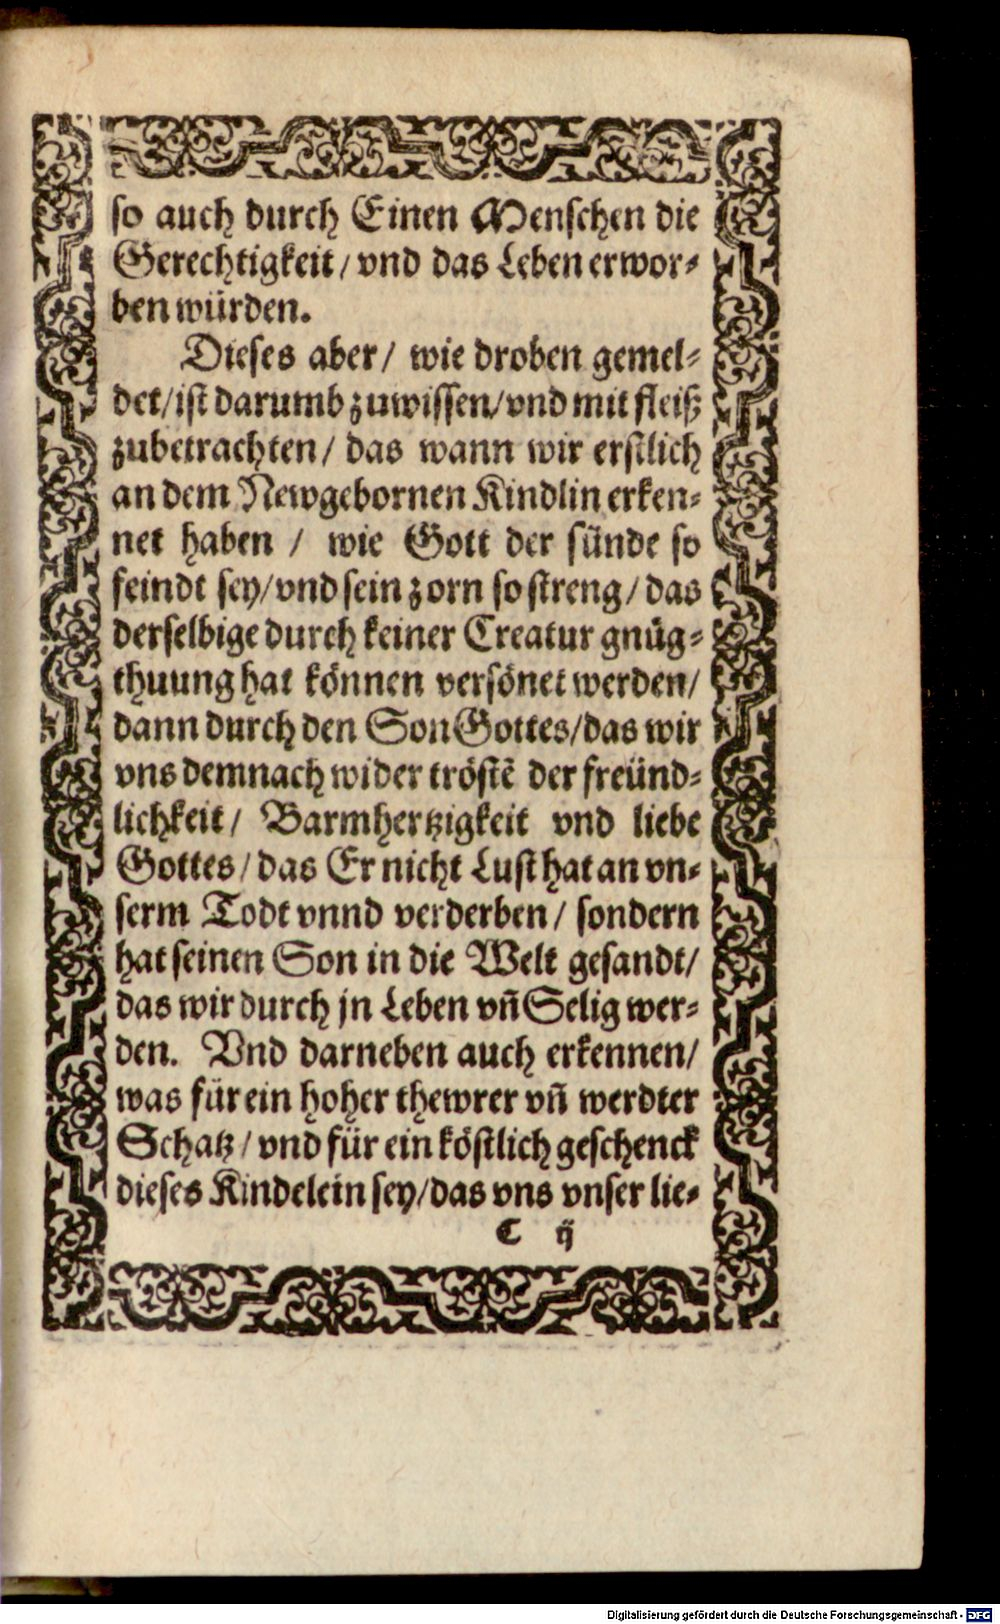 so auch durch Einen Menschen die
Gerechtigkeit / vnd das Leben erwor⸗
ben würden.
Dieses aber / wie droben gemel⸗
det / ist darumb zuwissen / vnd mit fleiß
zubetrachten / das wann wir erstlich
an dem Newgebornen Kindlin erken⸗
net haben / wie Gott der sünde so
feindt sey / vnd sein zorn so streng / das
derselbige durch keiner Creatur gnůg⸗
thuung hat können versönet werden /
dann durch den Son Gottes / das wir
vns demnach wider tröstē der freünd⸗
lichkeit / Barmhertzigkeit vnd liebe
Gottes / das Er nicht Lust hat an vn⸗
serm Todt vnnd verderben / sondern
hat seinen Son in die Welt gesandt /
das wir durch jn Leben vñ Selig wer⸗
den. Vnd darneben auch erkennen /
was für ein hoher thewrer vñ werdter
Schatz / vnd für ein köstlich geschenck
dieses Kindelein sey / das vns vnser lie⸗
C ij
Digitalisierung gefördert durch die Deutsche Forschungsgemeinschaft - DFG